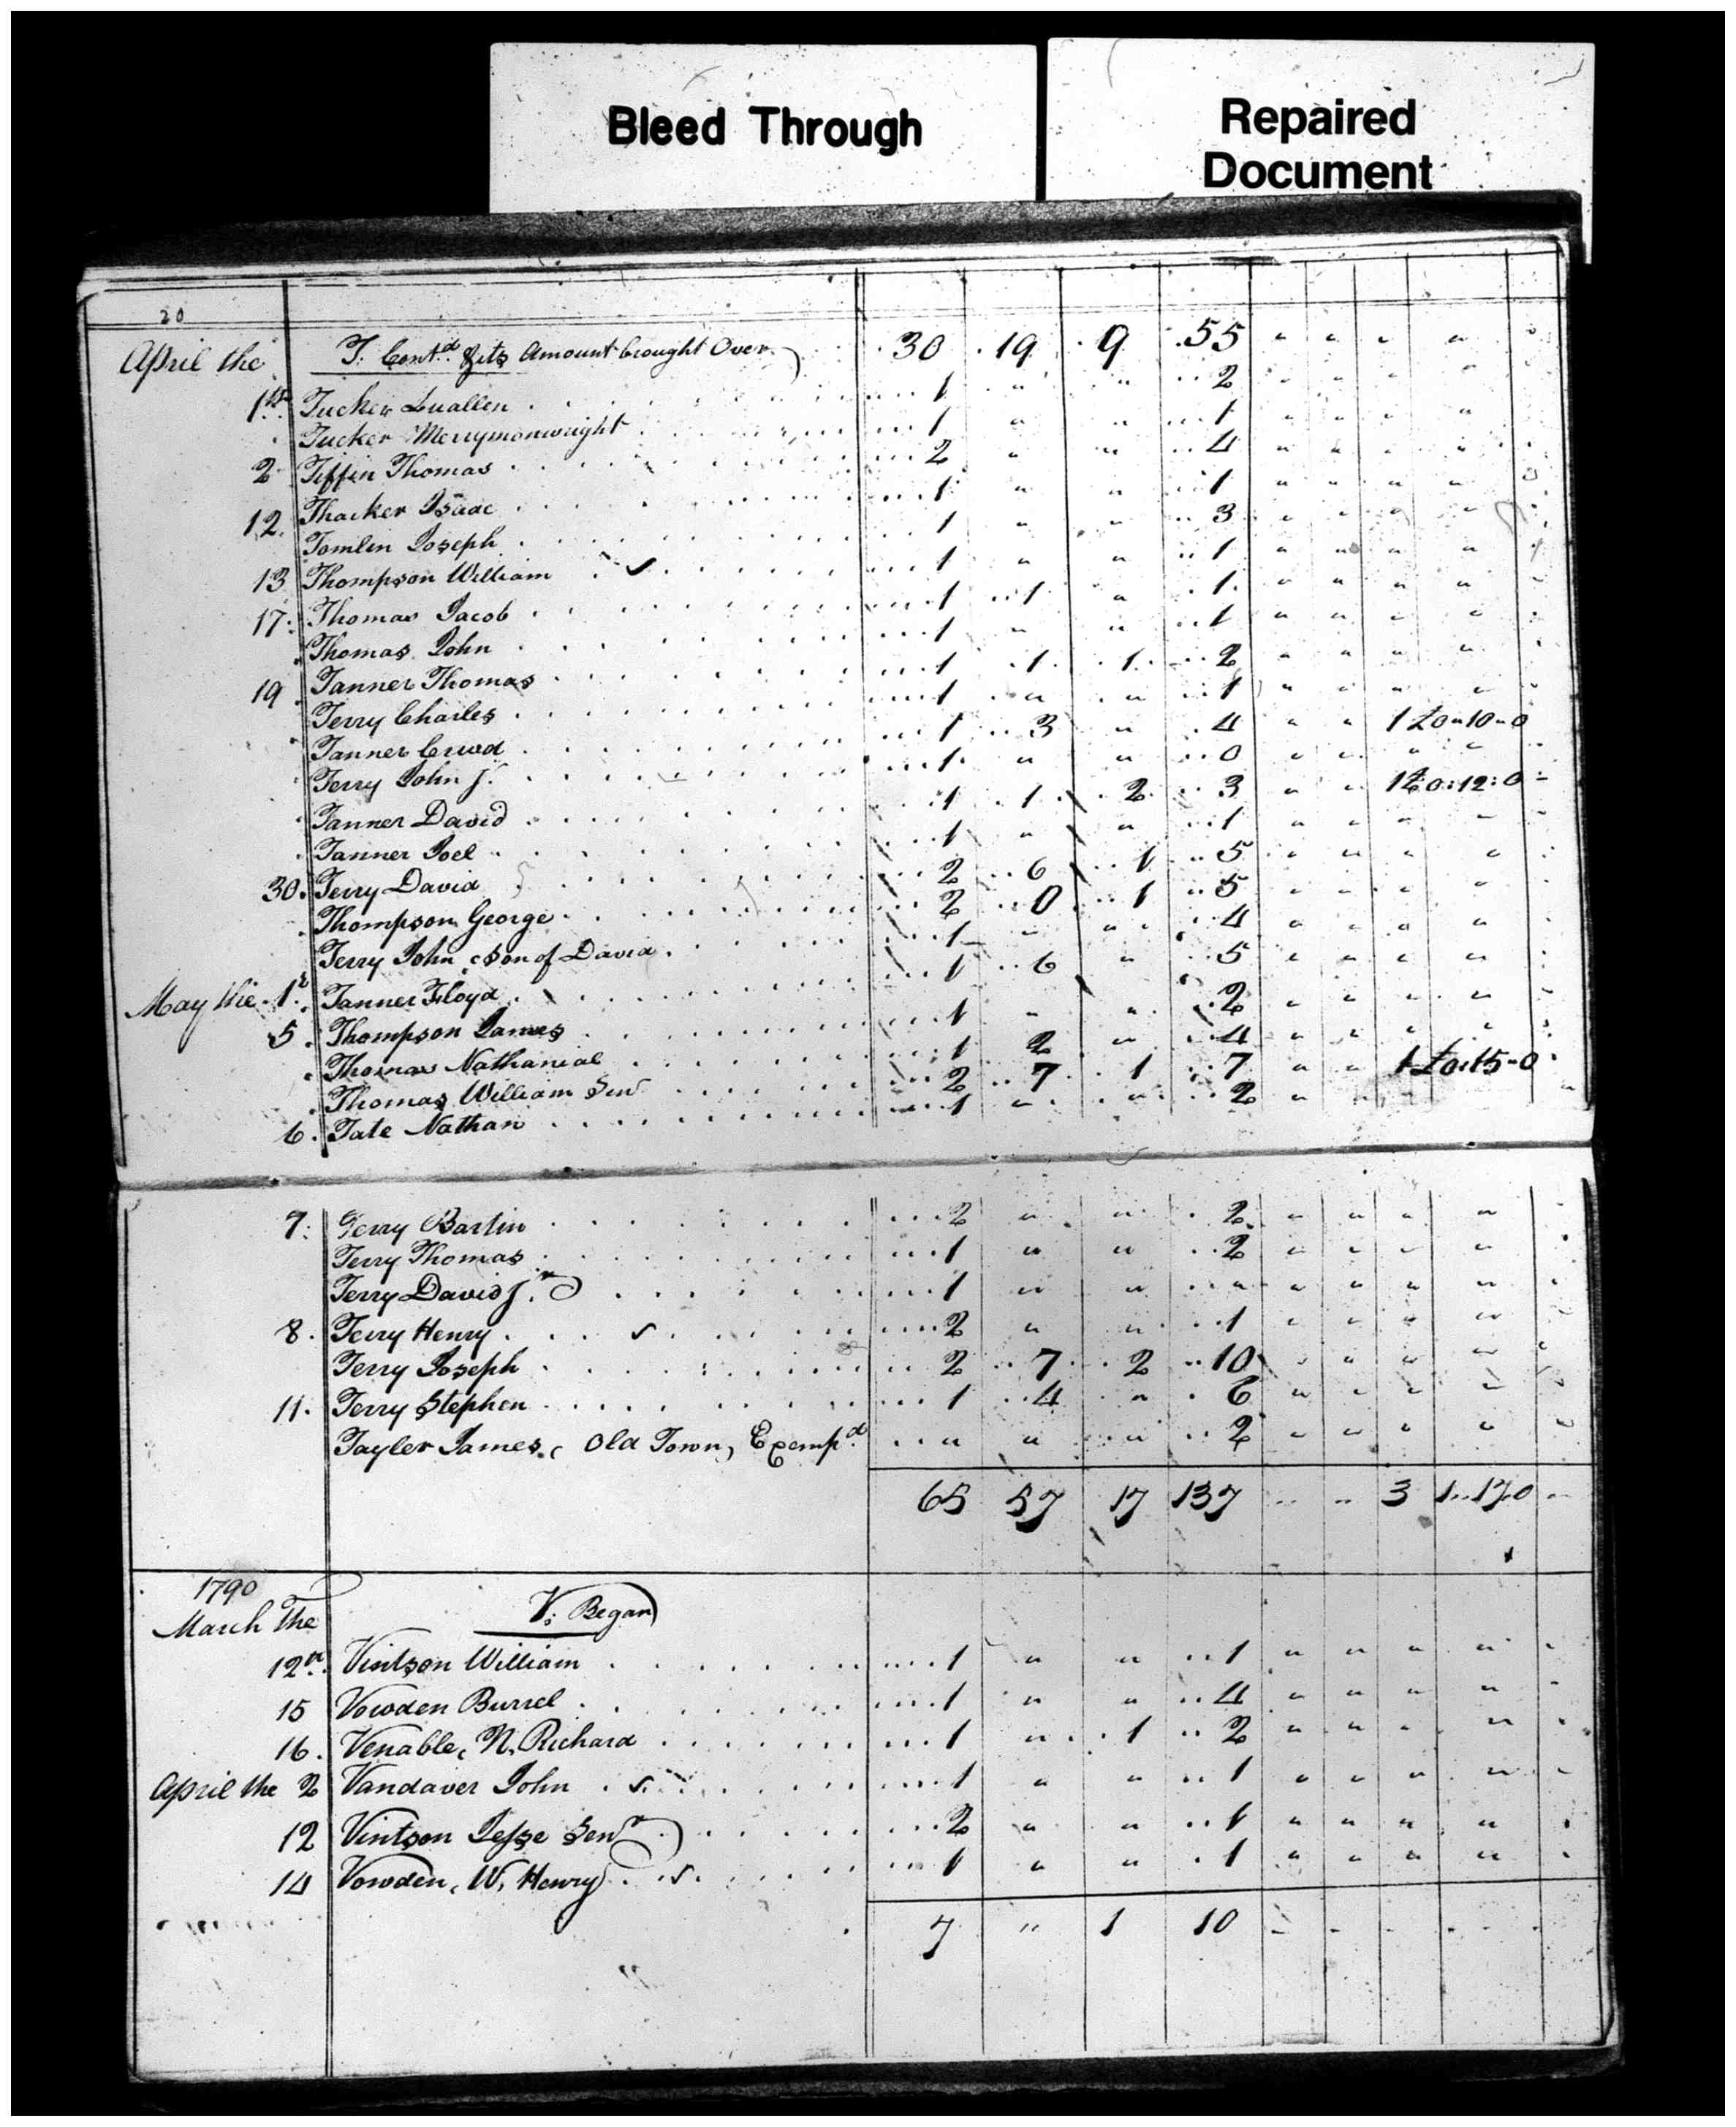 Bleed Through
Repaired
Document
20
April the T. Contd & its Amount brought Over 30 19 9 55 " " " "
1st Tucker Luallen 1 " " 2 " " " "
Tucker Merrymonwright 1 " " 1 " " " "
2 Tiffin Thomas 2 " " 4 " " " "
Thacker Isaac 1 " " 1 " " " "
12. Tomlin Joseph 1 " " 3 " " " "
13 Thompson William 1 " " 1 " " " "
17: Thomas Jacob 1 1 " 1 " " " "
Thomas John 1 " " 1 " " " "
19 Tanner Thomas 1 1 1 2 " " " "
Terry Charles 1 " " 1 " " " "
Tanner Creed 1 3 " 4 " " 1 £0-10-0
Terry John J. 1 " " 0 " " " "
Tanner David 1 1 2 3 " " 1 £0:12:0
Tanner Joel 1 " " 1 " " " "
30. Terry David 2 6 1 5 " " " "
Thompson George 2 0 1 5 " " " "
Terry John, Son of David. 1 " " 4 " " " "
May the 1st Tanner Floyd 1 6 " 5 " " " "
5. Thompson James 1 " " 2 " " " "
Thomas Nathanial 1 2 " 4 " " " "
Thomas William Senr 2 7 1 7 " " 1 £0:15-0
6. Tate Nathan 1 " " 2 " "
7: Terry Bartin 2 " " 2 " " " "
Terry Thomas 1 " " 2 " " " "
Terry David Jr. 1 " " " " " " "
8. Terry Henry 2 " " 1 " " " "
Terry Joseph 2 7 2 10 " " " "
11. Terry Stephen 1 4 " 6 " " " "
Tayler James, ( Old Town, Exempd " " " 2 " " " "
65 57 17 137 " " 3 1..17.0
1790
March the V: Began
12th Vintson William 1 " " 1 " " " "
15 Vowden Burrel 1 " " 4 " " " "
16. Venable, N. Richard 1 " 1 2 " " " "
April the 2 Vandaver John 1 " " 1 " " " "
12 Vintson Jesse Senr 2 " " 1 " " " "
14 Vowden, W. Henry 1 " " 1 " " " "
7 " 1 10 - - - -